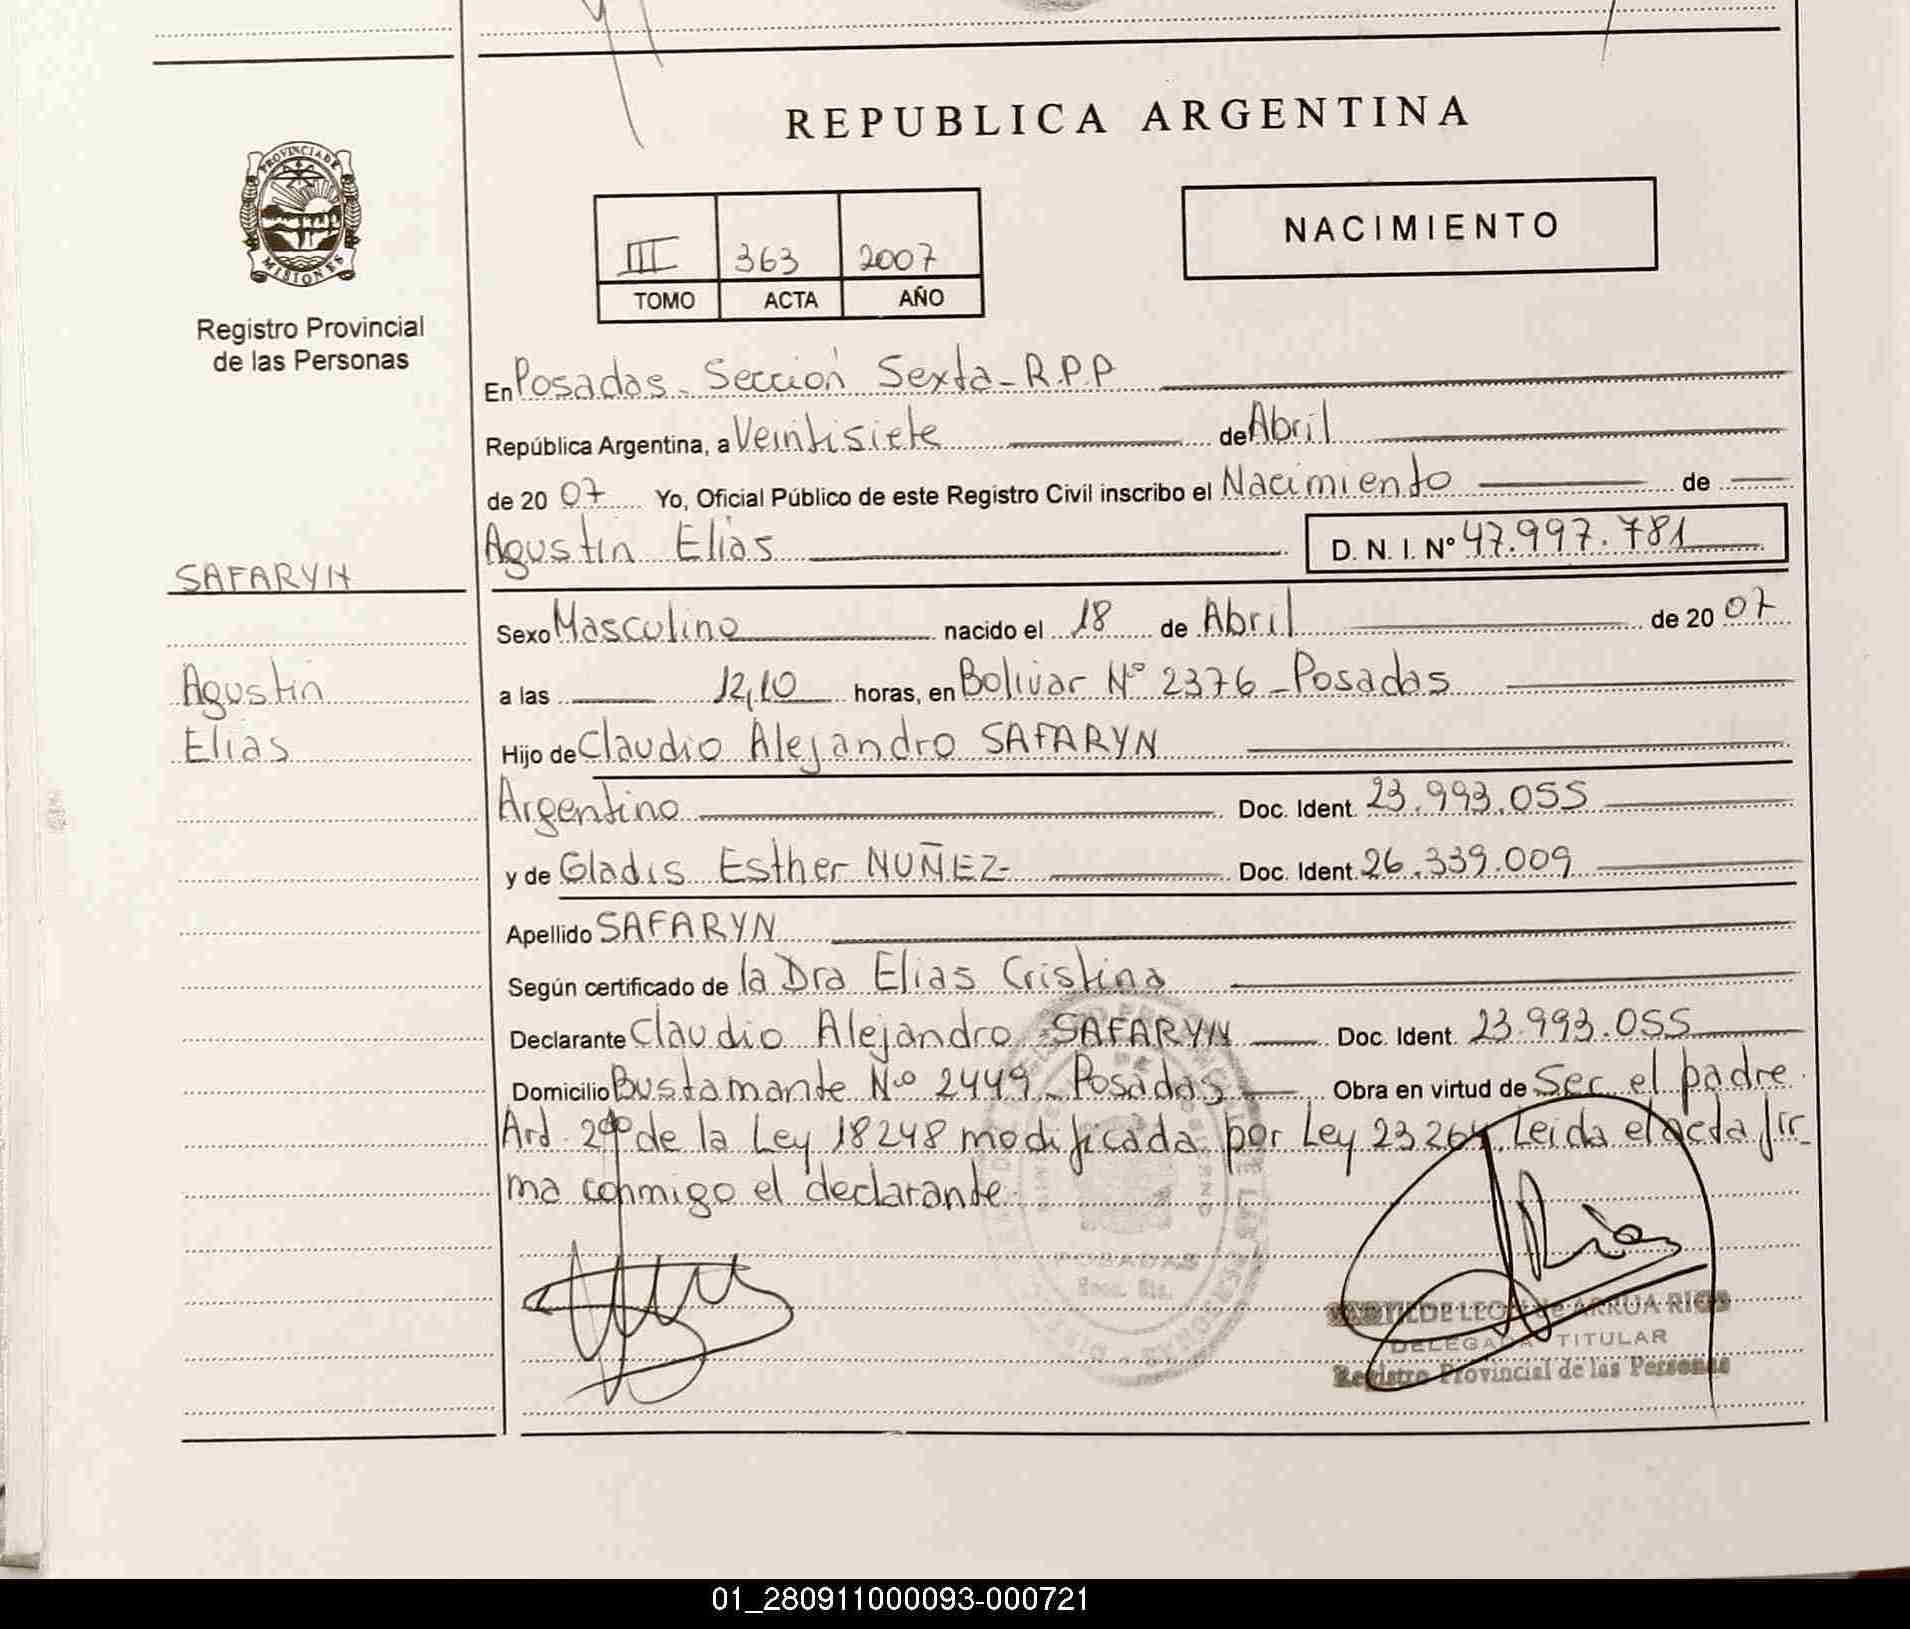 REPUBLICA ARGENTINA
PROVINCIA DE
MISIONES
Registro Provincial
de las Personas
III 363 2007
TOMO ACTA AÑO
NACIMIENTO
En Posadas - Sección Sexta - R.P.P
República Argentina, a Veintisiete de Abril
de 20 07 Yo, Oficial Público de este Registro Civil inscribo el Nacimiento de
Agustin Elias D. N. I. Nº 47.997.781
SAFARYN
Sexo Masculino nacido el 18 de Abril de 20 07
Agustin
Elias
a las 12,10 horas, en Bolivar Nº 2376 - Posadas
Hijo de Claudio Alejandro SAFARYN
Argentino Doc. Ident. 23.993.055
y de Gladis Esther NUÑEZ- Doc. Ident. 26.339.009
Apellido SAFARYN
Según certificado de la Dra Elias Cristina
Declarante Claudio Alejandro SAFARYN Doc. Ident. 23.993.055
Domicilio Bustamante Nº 2449 - Posadas Obra en virtud de Sec. el padre.
Ard. de la Ley 18248 modificada por Ley 23264. Leida el acta fir_
ma conmigo el declarante.
POSADAS
Secc. 6ta.
DE LEON de ARRUA RIOS
DELEGADA TITULAR
Registro Provincial de las Personas
01_280911000093-000721